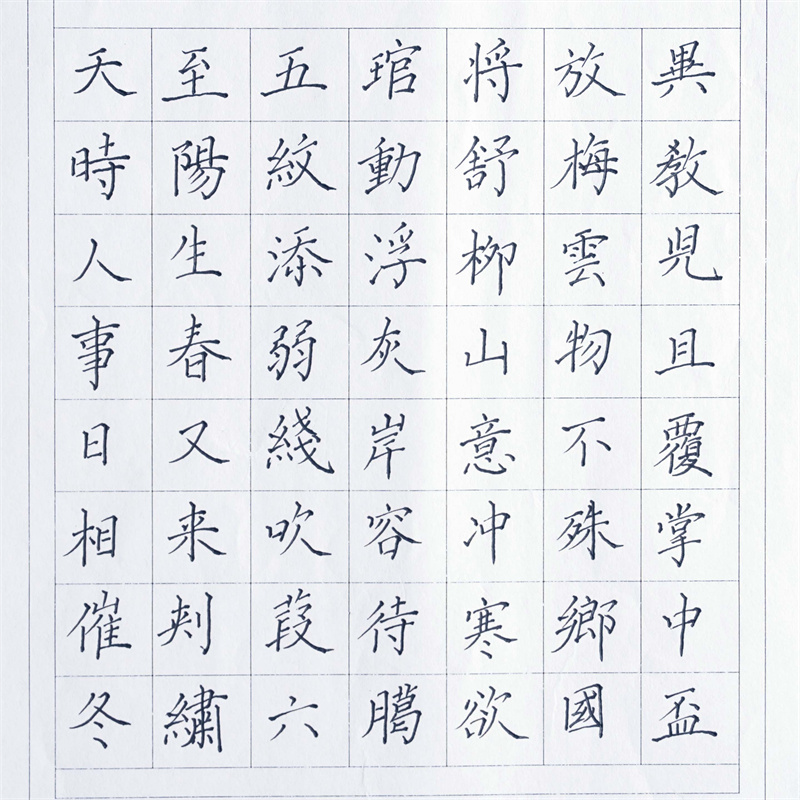 天時人事日相催冬
至陽生春又来刾繡
五紋添弱綫吹葭六
琯動浮灰岸容待臈
将舒柳山意冲寒欲
放梅雲物不殊鄉國
異教児且覆掌中盃